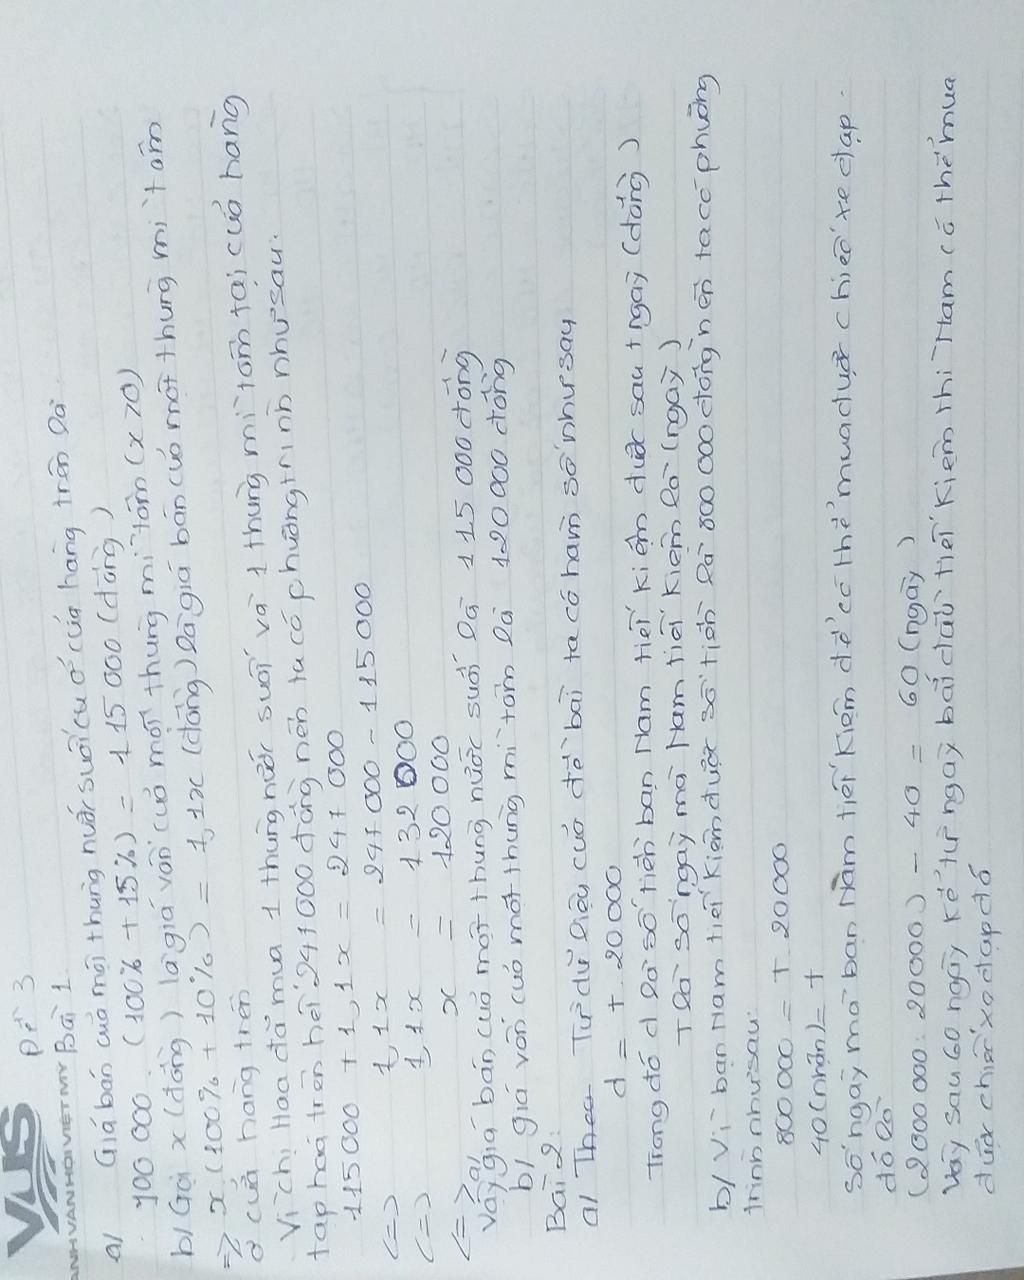 VUS
ANH VĂN HỘI VIỆT MỸ
Đề 3
Bài 1
a/ Giá bán của một thùng nước suối của ở cửa hàng trên là
100 000 . (100% + 15%) = 115 000 (đồng)
b/ Gọi x (đồng) là giá vốn của mỗi thùng mì tôm (x > 0)
=> x (100% + 10%) = 1,1x (đồng) là giá bán của một thùng mì tôm
ở cửa hàng trên
Vì chị Hoa đã mua 1 thùng nước suối và 1 thùng mì tôm tại cửa hàng
tạp hoá trên hết 247 000 đồng nên ta có phương trình như sau:
115 000 + 1,1x = 247 000
<=> 1,1x = 247 000 - 115 000
<=> 1,1x = 132 000
<=> x = 120 000
Vậy a/ giá bán của một thùng nước suối là 115 000 đồng
b/ giá vốn của một thùng mì tôm là 120 000 đồng
Bài 2:
a/ Theo Từ dữ liệu của đề bài ta có hàm số như sau
d = t . 20 000
Trong đó d là số tiền bạn Nam tiết kiệm được sau t ngày (đồng)
t là số ngày mà Nam tiết kiệm là (ngày)
b/ Vì bạn Nam tiết kiệm được số tiền là 800 000 đồng nên ta có phương
trình như sau:
800 000 = t . 20 000
40 (nhận) = t
Số ngày mà bạn Nam tiết kiệm để có thể mua được chiếc xe đạp
đó là
(2 000 000 : 20 000) - 40 = 60 (ngày)
Vậy sau 60 ngày kể từ ngày bắt đầu tiết kiệm thì Nam có thể mua
được chiếc xe đạp đó